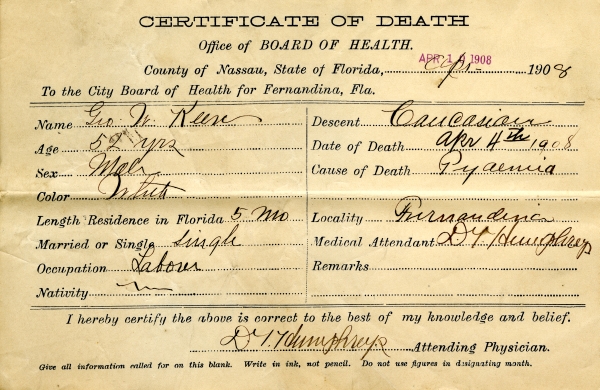 CERTIFICATE OF DEATH
Office of BOARD OF HEALTH.
APR 1908
County of Nassau, State of Florida, Apr 1908
To the City Board of Health for Fernandina, Fla.
Name Geo. W. Keen
Age 52 yrs
Sex Male
Color White
Length Residence in Florida 5 Mo
Married or Single Single
Occupation Laborer
Nativity
Descent Caucasian
Date of Death Apr 4th 1908
Cause of Death Pyaemia
Locality Fernandina
Medical Attendant D. T. Humphreys
Remarks
I hereby certify the above is correct to the best of my knowledge and belief.
D. T. Humphreys Attending Physician.
Give all information called for on this blank. Write in ink, not pencil. Do not use figures in designating month.